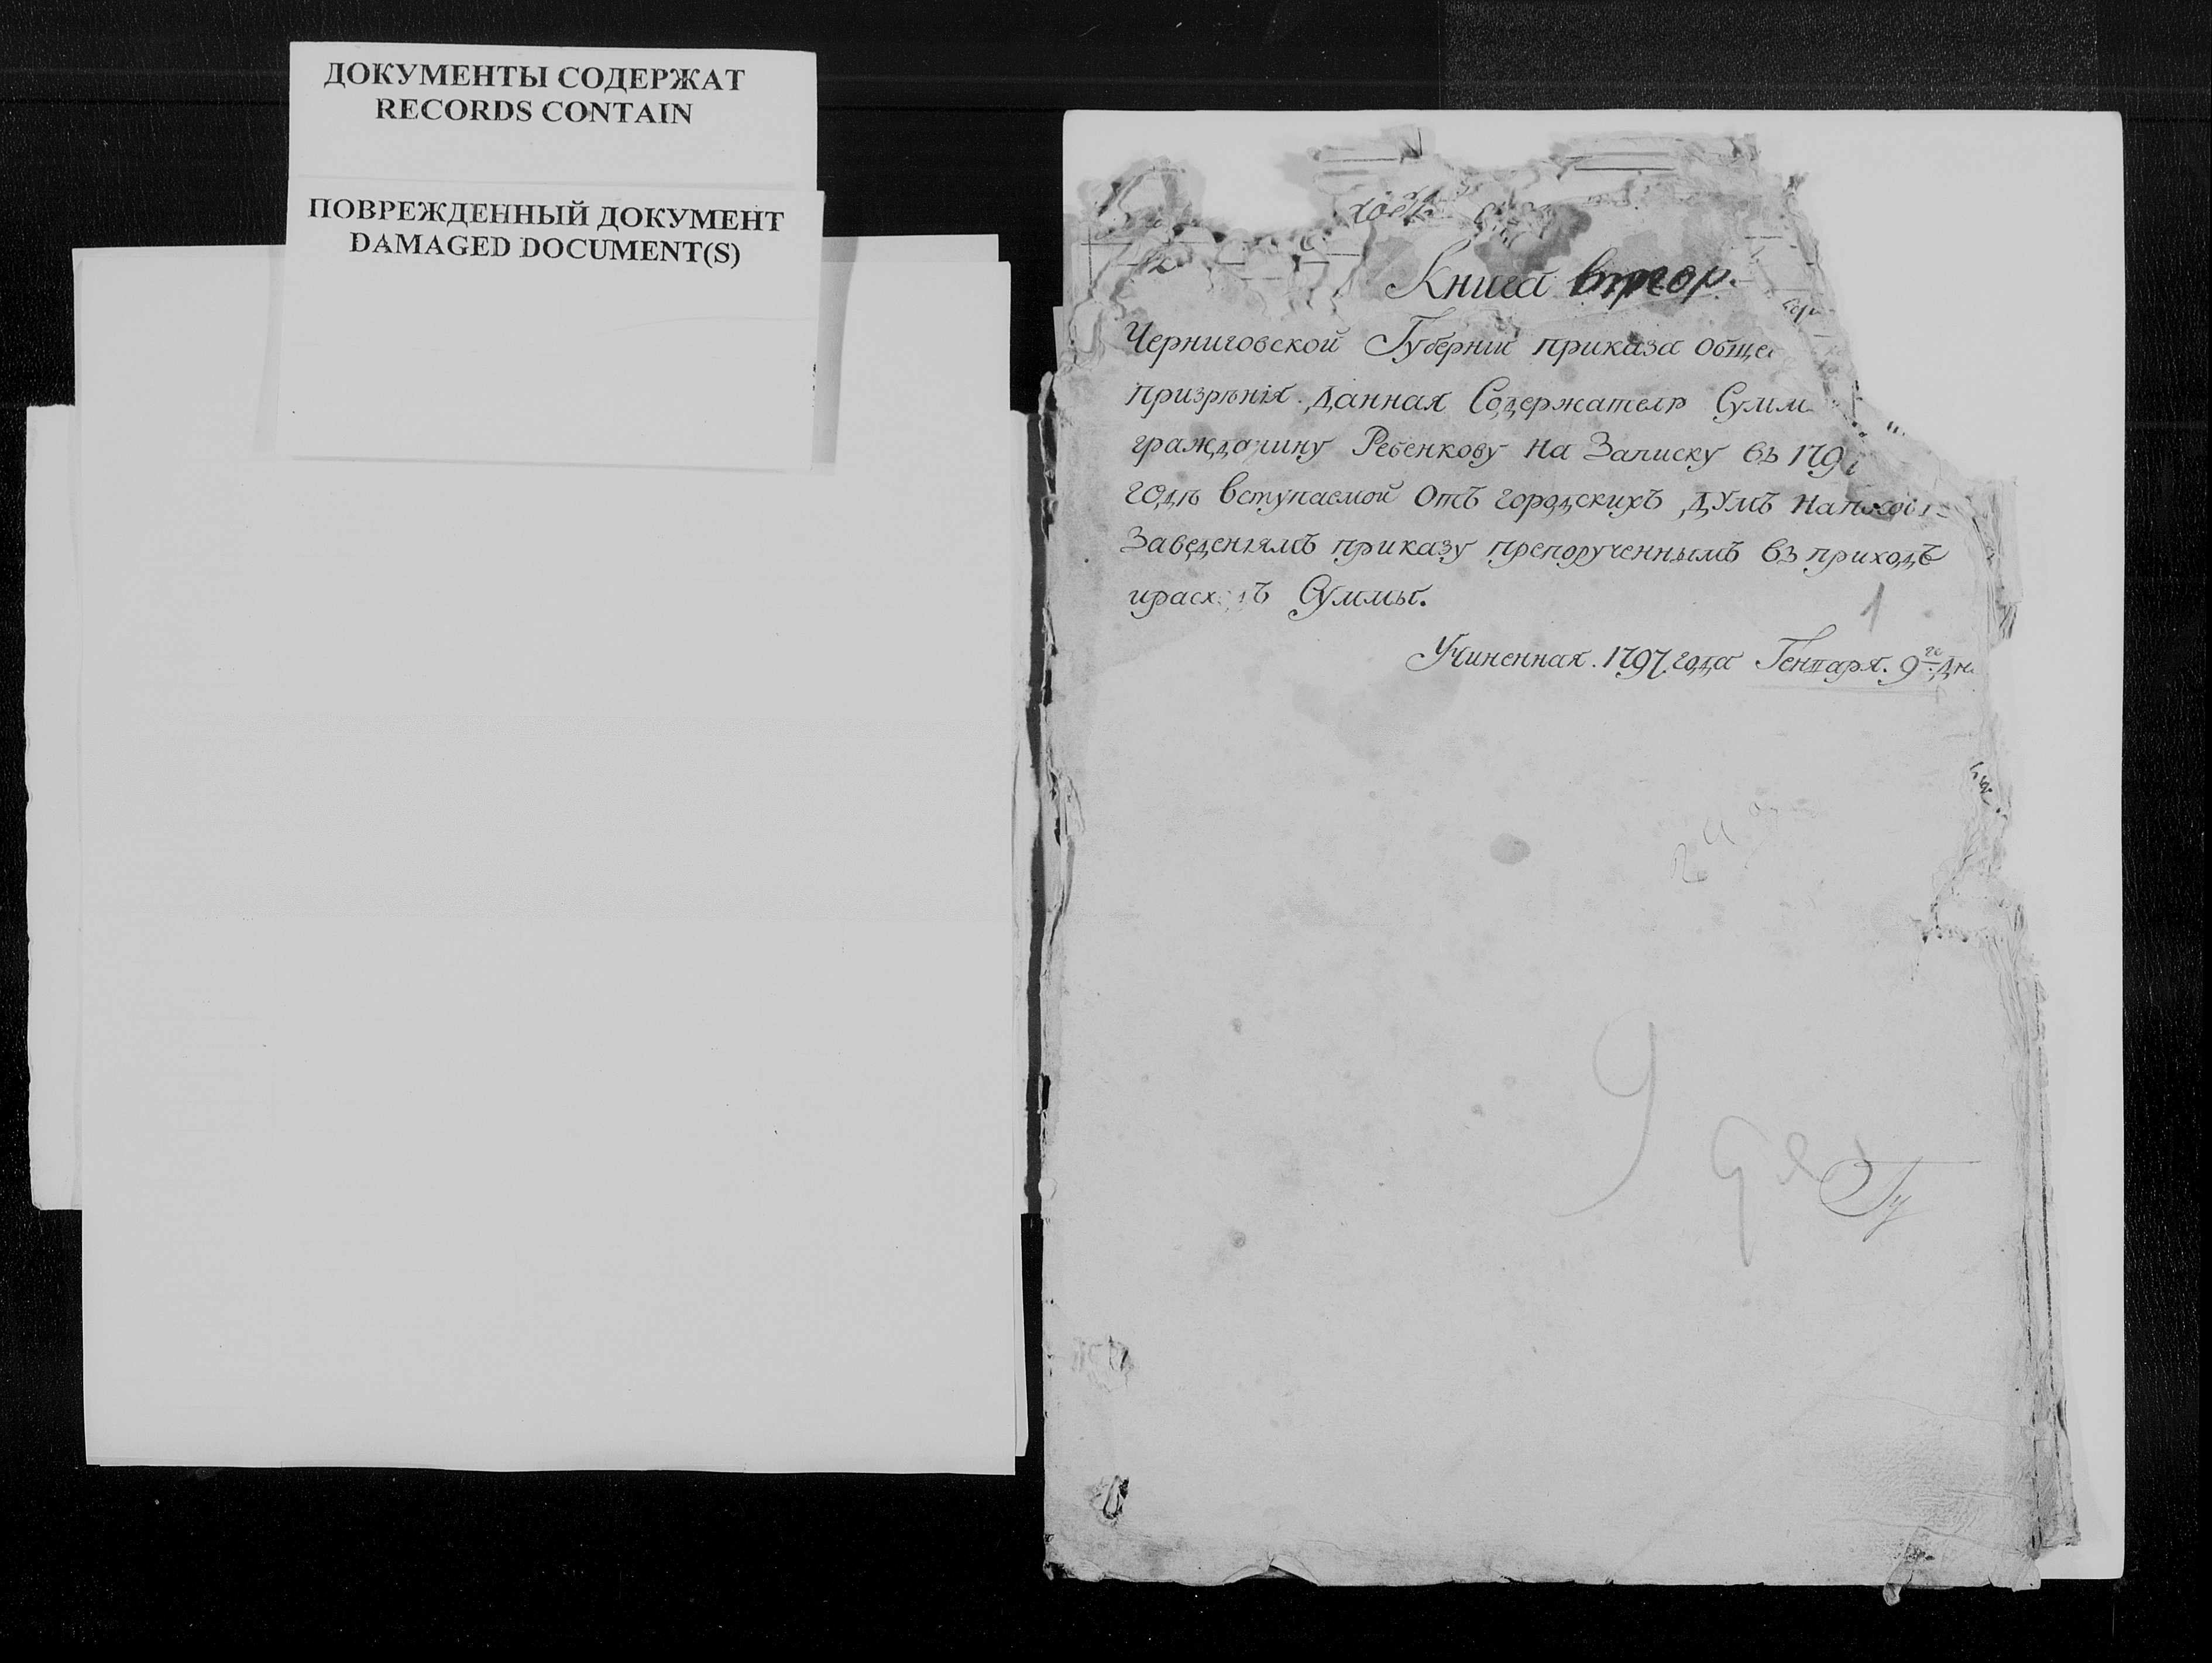 ДОКУМЕНТЫ СОДЕРЖАТ
RECORDS CONTAIN
ПОВРЕЖДЕННЫЙ ДОКУМЕНТ
DAMAGED DOCUMENT(S)
Книга втор
Черниговской Губернїи приказа обще
призрѣнія. данная Содержателю Сумм
гражданину Ребенкову на Записку въ 179
годѣ вступаемой отъ городскихъ думъ
Заведеніямъ приказу препорученнымъ въ приходъ
и Суммы.
1
Учиненная. 1797 года Генваря. 9го
9